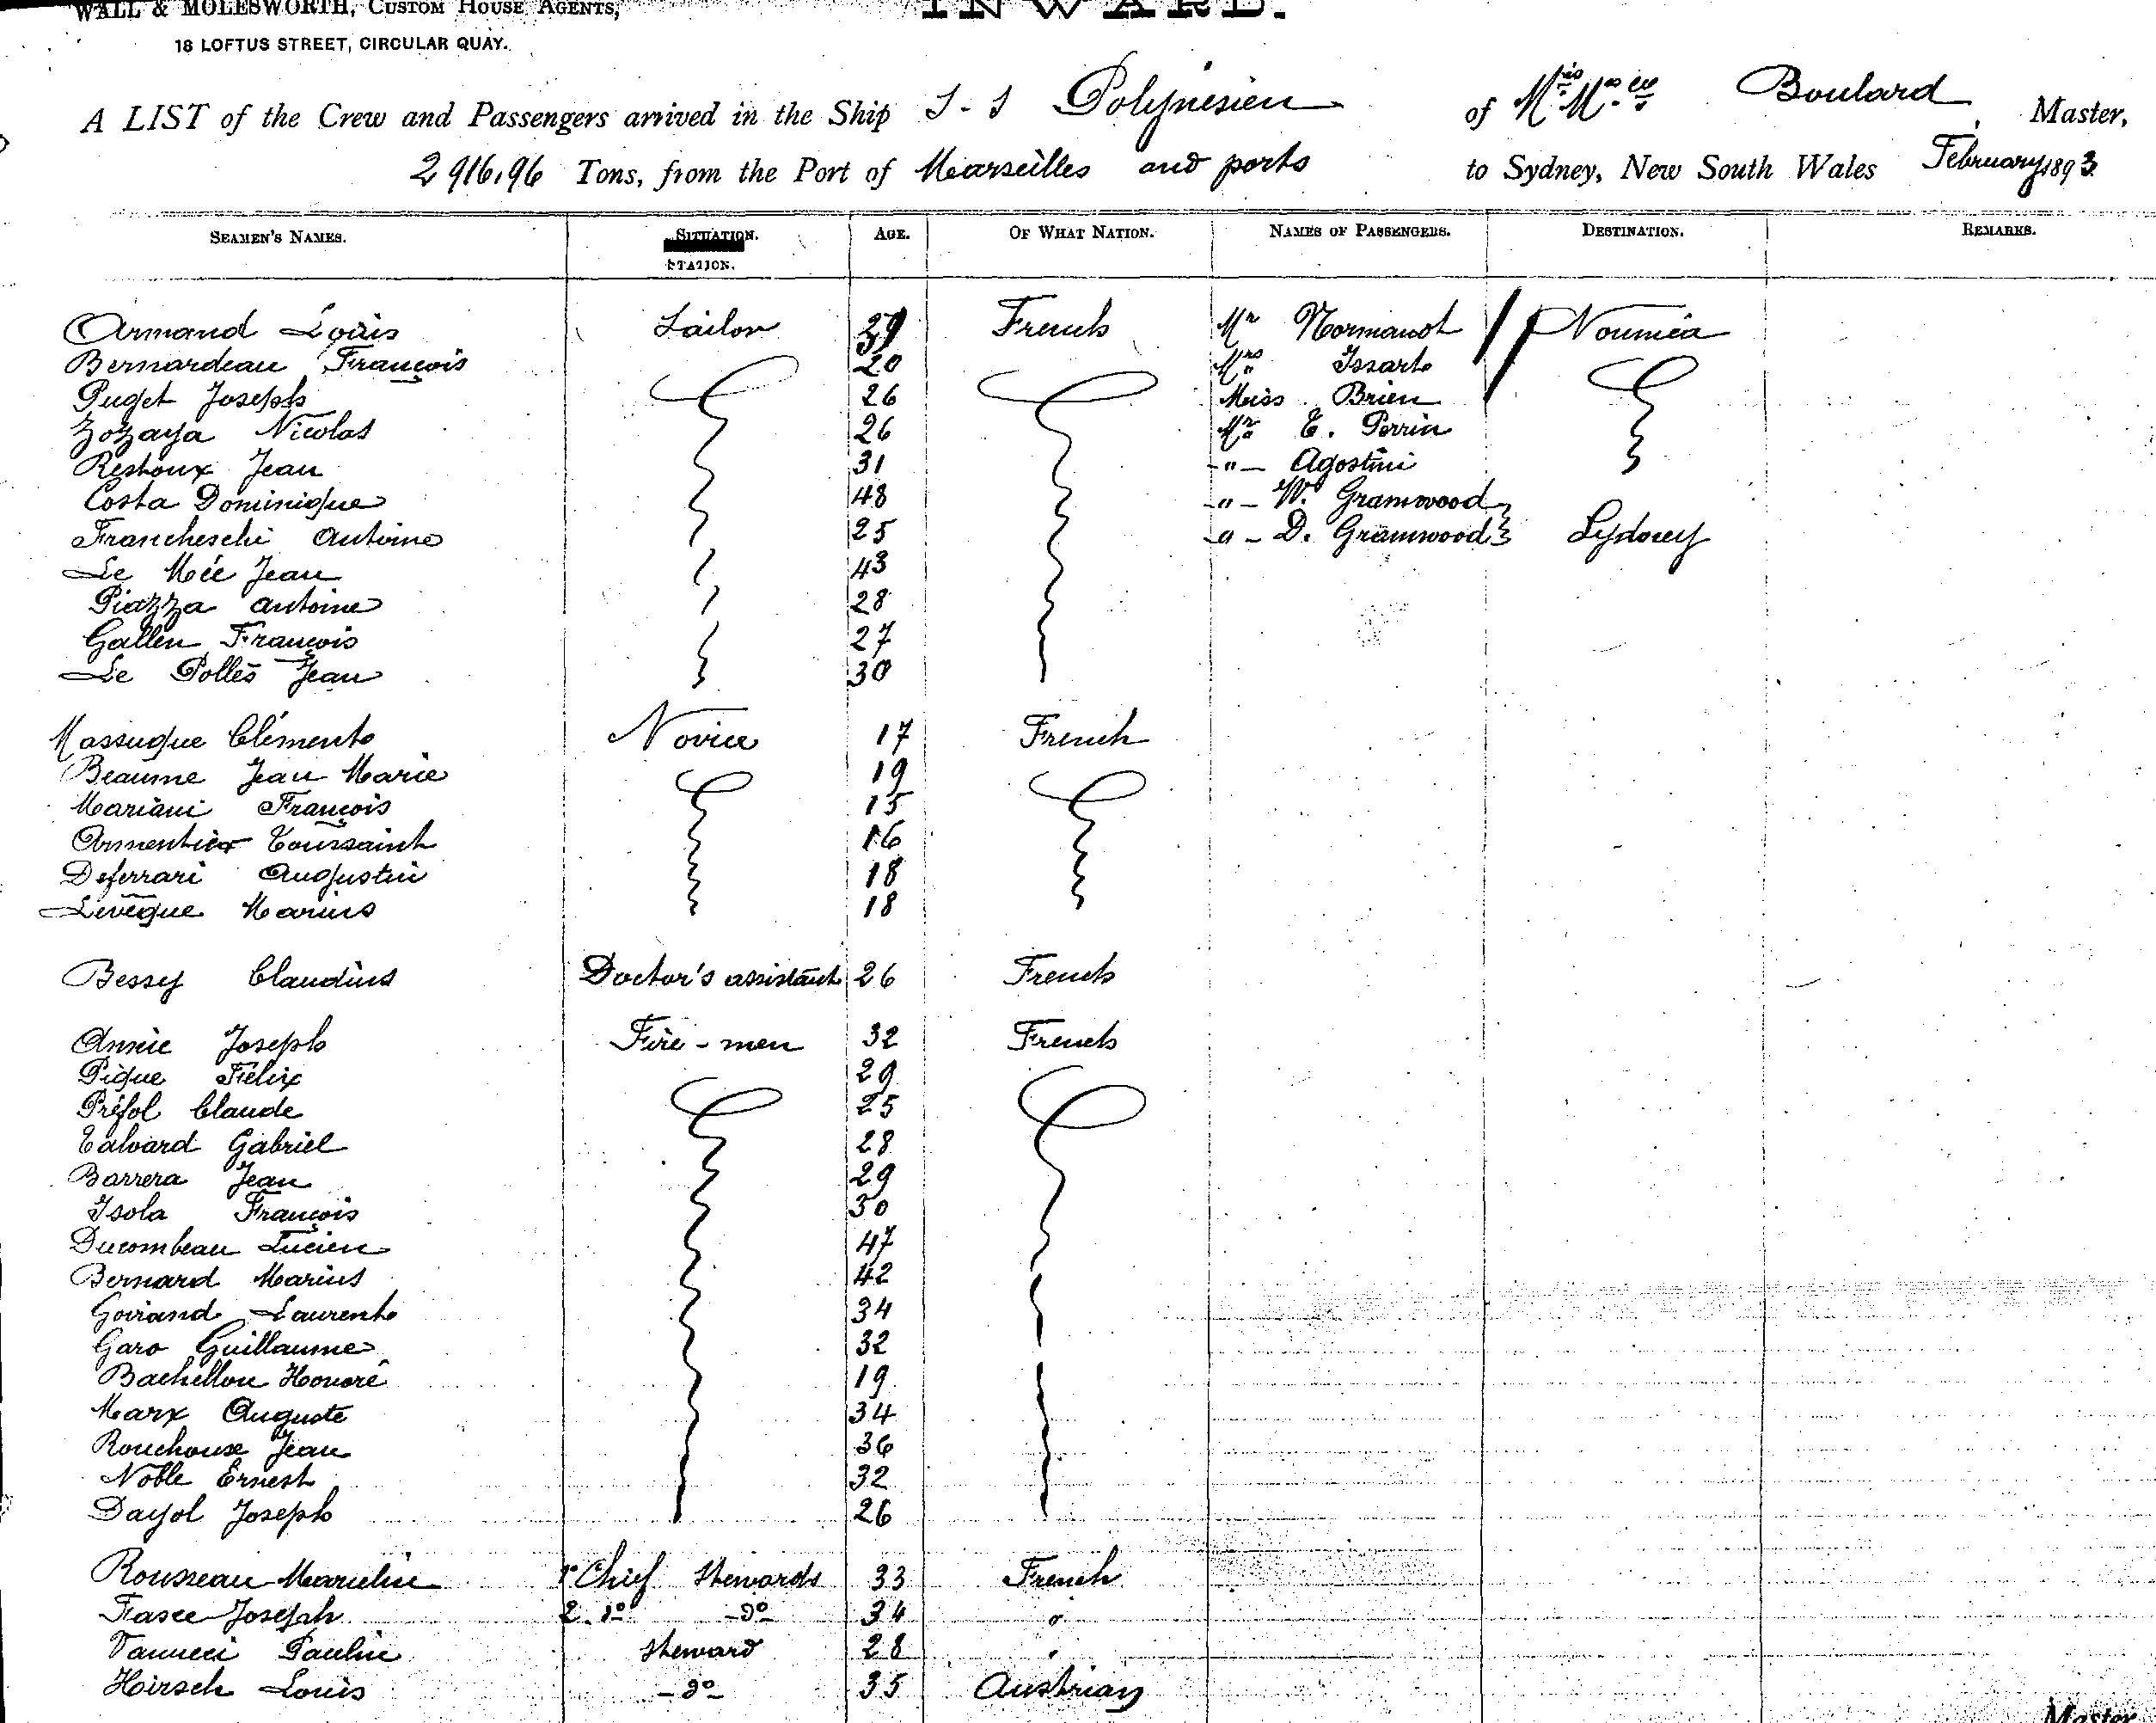 WALL & MOLESWORTH, CUSTOM HOUSE AGENTS,
INWARD.
18 LOFTUS STREET, CIRCULAR QUAY.
A LIST of the Crew and Passengers arrived in the Ship S-S Polynesien of Boulard, Master,
2916,96 Tons, from the Port of Marseilles and ports to Sydney, New South Wales February 1893
SEAMEN'S NAMES. SITUATION. AGE. OF WHAT NATION. NAMES OF PASSENGERS. DESTINATION. REMARKS.
STATION.
Armand Louis Sailor 39 French Mr Normand Noumea
Bernardeau François 20 Mrs Issarte
Puget Joseph 26 Miss Brien
Zozaya Nicolas 26 Mr E. Perrin
Restoux Jean 31 -"- Agostini
Costa Dominique 48 -"- W. Gramwood
Francheschi Antoine 25 -"- D. Gramwood Sydney
Le Mée Jean 43
Piazza Antoine 28
Gallen François 27
Le Pollès Jean 30
Massuque Clémente Novice 17 French
Beaume Jean Marie 19
Mariani François 15
Toussaint 16
Deferrari Augustin 18
Levêque Marius 18
Bessey Claudius Doctor's assistant 26 French
Annie Joseph Fire-men 32 French
Pique Félix 29
Préfol Claude 25
Edward Gabriel 28
Barrera Jean 29
Isola François 30
Ducombeau Lucien 47
Bernard Marius 42
Goirand Laurente 34
Garo Guillaume 32
Bachellon Honoré 19
Marx Auguste 34
Rouchouse Jean 36
Noble Ernest 32
Dayol Joseph 26
Rousseau Marcelin 1º Chief Stewards 33 French
Fasce Joseph 2 dº -dº- 34 "
Vanucci Paulin Steward 28 "
Hirsch Louis -dº- 35 Austrian
Master